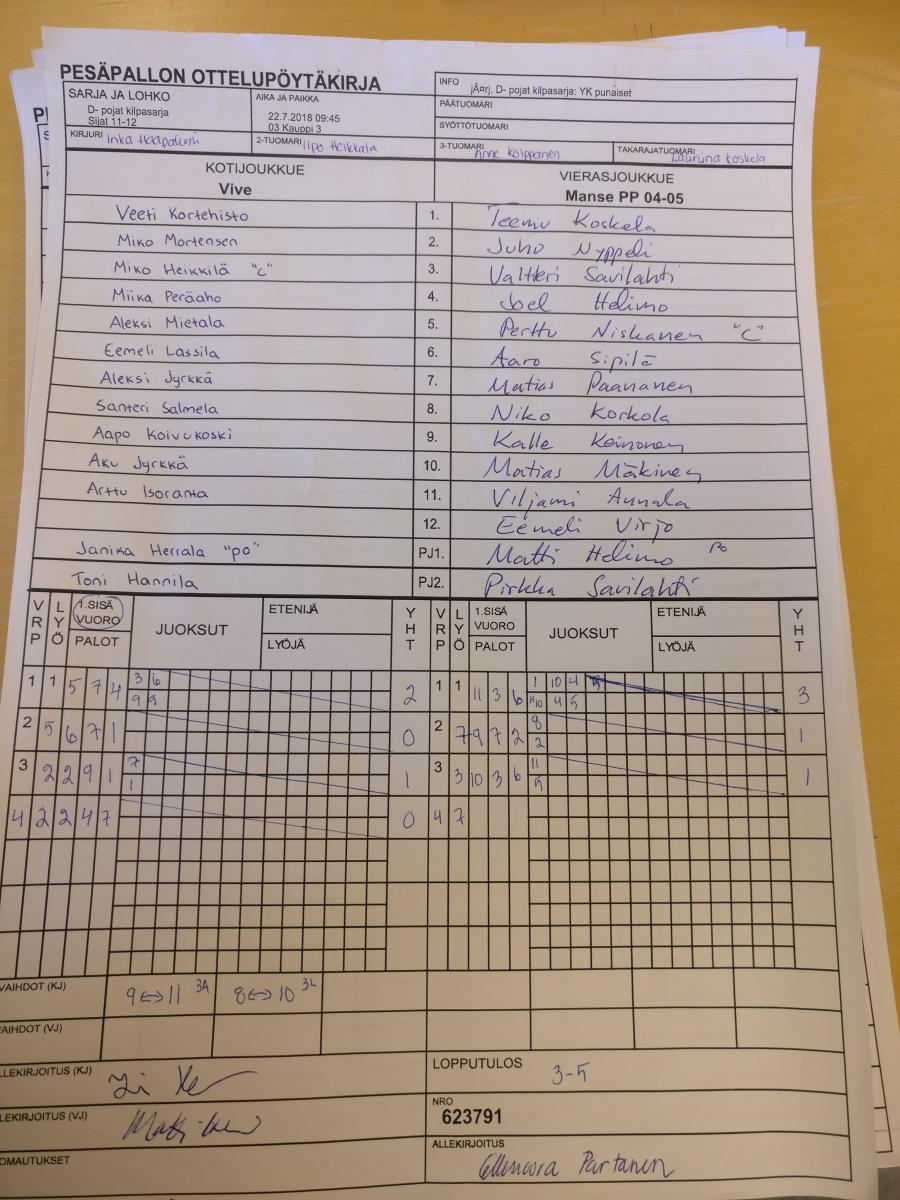 PESÄPALLON OTTELUPÖYTÄKIRJA
INFO jÃ¤rj. D- pojat kilpasarja: YK punaiset
SARJA JA LOHKO
D- pojat kilpasarja
Sijat 11-12
AIKA JA PAIKKA
22.7.2018 09:45
03 Kauppi 3
PÄÄTUOMARI
SYÖTTÖTUOMARI
KIRJURI Inka
2-TUOMARI Ilpo Heikkala
3-TUOMARI Anne Kolppanen
TAKARAJATUOMARI Koskela
KOTIJOUKKUE VIERASJOUKKUE
Vive Manse PP 04-05
Veeti Kortehisto 1. Teemu Koskela
Miko Mortensen 2. Juho Nyppeli
Miko Heikkilä "C" 3. Valtteri Savilahti
Miika Peräaho 4. Joel Helimo
Aleksi Mietala 5. Perttu Niskanen "C"
Eemeli Lassila 6. Aaro Sipilä
Aleksi Jyrkkä 7. Matias Paananen
Santeri Salmela 8. Niko Korkola
Aapo Koivukoski 9. Kalle Keinonen
Aku Jyrkkä 10. Matias Mäkinen
Arttu Isoranta 11. Viljami Annala
12. Eemeli Virjo
Janika Herrala "po" PJ1. Matti Helimo Po
Toni Hannila PJ2. Pirkka Savilahti
VRP LYÖ 1.SISÄ VUORO PALOT JUOKSUT ETENIJÄ LYÖJÄ YHT VRP LYÖ 1.SISÄ VUORO PALOT JUOKSUT ETENIJÄ LYÖJÄ YHT
1 1 5 7 4 3 6 2 1 1 11 3 6 1 10 4 3
9 9 4 5
2 5 6 7 1 0 2 7 9 7 2 8 1
2
3 2 2 9 1 7 1 3 3 10 3 6 11 1
1 5
4 2 2 4 7 0 4 7
VAIHDOT (KJ) 9↔11 3A 8↔10 3L
VAIHDOT (VJ)
LLEKIRJOITUS (KJ)
LOPPUTULOS 3-5
LEKIRJOITUS (VJ)
NRO
623791
OMAUTUKSET
ALLEKIRJOITUS
Ellinoora Partanen